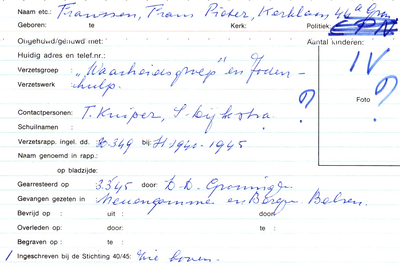 Naam etc.: Franssen, Frans Pieter, Kerklaan 44a Gron
Geboren: te Kerk: Politiek: CPN
Ongehuwd/gehuwd met: Aantal kinderen:
Huidig adres en telef.nr.: IV
Verzetsgroep : „Waarheidsgroep" en Joden-
Verzetswerk hulp. ? Foto ?
Contactpersonen: T. Kuiper, S. Dijkstra
Schuilnaam :
Verzetsrapp. ingel. dd. 349 bij: H 1940-1945
Naam genoemd in rapp.:
op bladzijde:
Gearresteerd op 3.3.45 door: S.D. Groningen
Gevangen gezeten in Neuengamme en Bergen Belsen.
Bevrijd op : uit : door:
Overleden op: te : door:
Begraven op : te :
1 Ingeschreven bij de Stichting 40/45: zie boven.